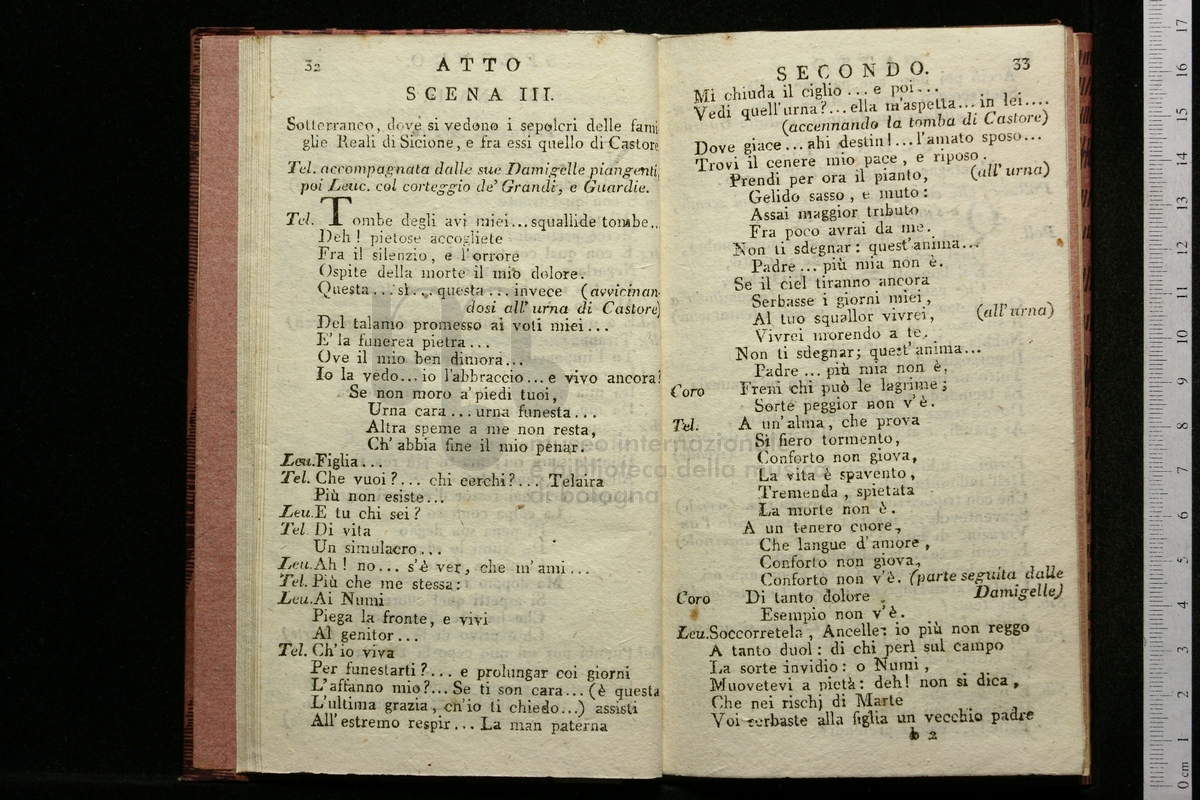 32
ATTO
SCENA III.
Sotterraneo, dove si vedono i sepolcri delle fami
glie Reali di Sicione, e fra essi quello di Castore
Tel. accompagnata dalle sue Damigelle piangenti,
poi Leuc. col corteggio de' Grandi, e Guardie.
Tel. Tombe degli avi miei...squallide tombe..
Deh! pietose accogliete
Fra il silenzio, e l'orrore
Ospite della morte il mio dolore.
Questa... sì... questa... invece (avvicinan-
dosi all' urna di Castore)
Del talamo promesso ai voti miei...
E' la funerea pietra...
Ove il mio ben dimora...
Io la vedo...io l'abbraccio...e vivo ancora!
Se non moro a' piedi tuoi,
Urna cara...urna funesta...
Altra speme a me non resta,
Ch' abbia fine il mio penar.
Leu. Figlia...
Tel. Che vuoi?... chi cerchi?... Telaira
Più non esiste...
Leu. E tu chi sei?
Tel Di vita
Un simulacro...
Leu. Ah! no... s'è ver, che m'ami...
Tel. Più che me stessa:
Leu. Ai Numi
Piega la fronte, e vivi
Al genitor...
Tel. Ch'io viva
Per funestarti?... e prolungar coi giorni
L'affanno mio?... Se ti son cara... (è questa
L'ultima grazia, ch'io ti chiedo...) assisti
All' estremo respir... La man paterna
SECONDO.
33
Mi chiuda il ciglio... e poi...
Vedi quell'urna?...ella m'aspetta...in lei....
(accennando la tomba di Castore)
Dove giace...ahi destin!...l'amato sposo...
Trovi il cenere mio pace, e riposo.
Prendi per ora il pianto, (all' urna)
Gelido sasso, e muto:
Assai maggior tributo
Fra poco avrai da me.
Non ti sdegnar: quest' anima...
Padre... più mia non è.
Se il ciel tiranno ancora
Serbasse i giorni miei,
Al tuo squallor vivrei, (all' urna)
Vivrei morendo a te.
Non ti sdegnar; quest' anima...
Padre... più mia non è.
Coro Freni chi può le lagrime;
Sorte peggior non v'è.
Tel. A un' alma, che prova
Sì fiero tormento,
Conforto non giova,
La vita è spavento,
Tremenda, spietata
La morte non è.
A un tenero cuore,
Che langue d'amore,
Conforto non giova,
Conforto non v'è. (parte seguita dalle
Damigelle)
Coro Di tanto dolore
Esempio non v'è.
Leu. Soccorretela, Ancelle: io più non reggo
A tanto duol: di chi perì sul campo
La sorte invidio: o Numi,
Muovetevi a pietà: deh! non si dica,
Che nei rischj di Marte
Voi serbaste alla figlia un vecchio padre
b 2
museo internazionale
e biblioteca della musica
di bologna
17
16
15
14
13
12
11
10
9
8
7
6
5
4
3
2
1
0 cm